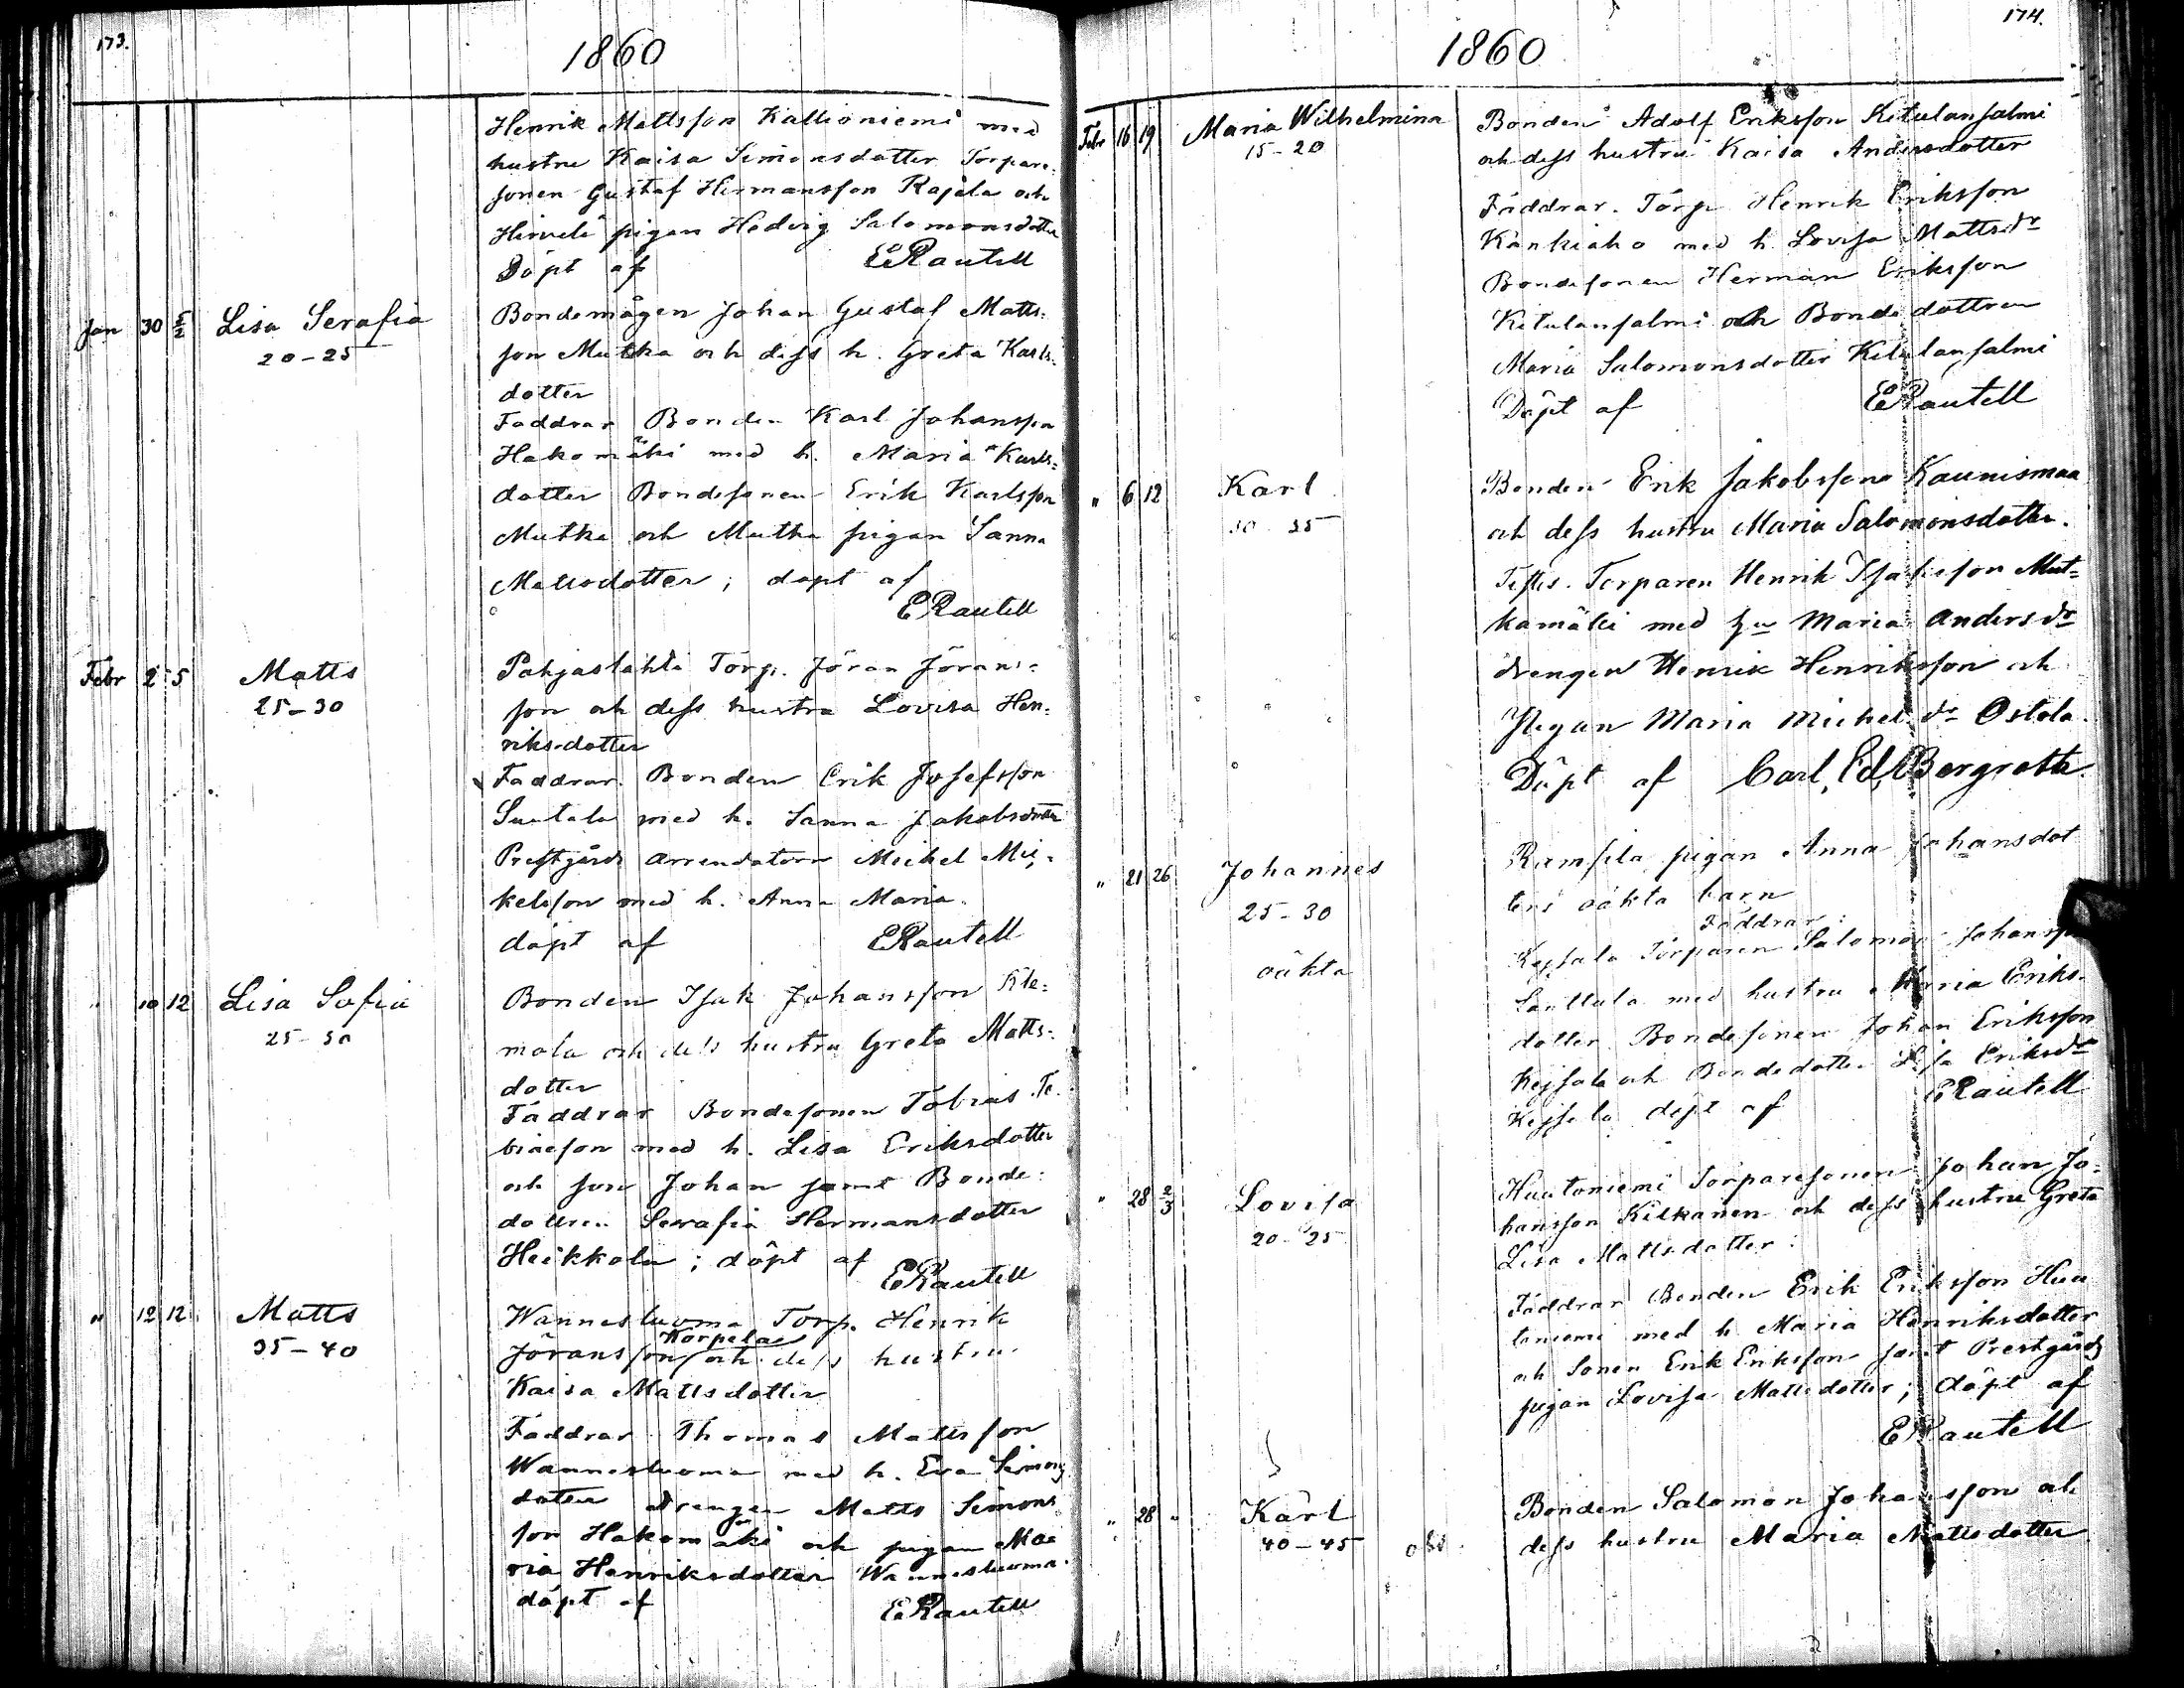 173.
1860
Henrik Mattsson Kallioniemi med
hustru Kaisa Simonsdotter Torpare=
sonen Gustaf Hermansson Rajala och
Hirvelä pigan Hedvig Salomonsdotter
Döpt af ERautell
Jan 30 5/2 Lisa Serafia Bondemågen Johan Gustaf Matts=
20-25 son Mutka och dess h. Greta Karls=
dotter
Faddrar Bonden Karl Johansson
Hakomäki med h. Maria Karls=
dotter Bondesonen Erik Karlsson
Mutka och Mutka pigan Sanna
Mattsdotter; döpt af
ERautell
Febr 2 5 Matts Pohjaslahti Torp. Jöran Jörans=
25-30 son och dess hustru Lovisa Hen=
riksdotter
Faddrar. Bonden Erik Josefsson
med h. Sanna Jakobsdotter
Prestgårds arrendatorn Michel Mi=
kelsson med h. Anna Maria.
döpt af ERautell
" 10 12 Lisa Sofia Bonden Isak Johansson Kle=
25-30 mola och dess hustru Greta Matts=
dotter
Faddrar Bondesonen Tobias To=
biasson med h. Lisa Eriksdotter
och son Johan samt Bonde=
dottren Serafia Hermansdotter
Heikkola; döpt af
ERautell
" 12 12 Matts Wannesluoma Torp. Henrik
35-40 Jöransson Korpela och dess hustru
Kaisa Mattsdotter
Faddrar Thomas Mattsson
Wannesluoma med h. Eva Simons
dotter drengen Matts Simons
son Hakomäki och pigan Ma=
ria Henriksdotter Wannesluoma.
döpt af ERautell
174.
1860
Febr 16 19 Maria Wilhelmina Bonden Adolf Eriksson Kitulansalmi
15-20 och dess hustru Kaisa Andersdotter
Faddrar. Torp Henrik Eriksson
Kankiaho med h. Lovisa Mattsdr
Bondesonen Herman Eriksson
Kitulansalmi och Bondedottren
Maria Salomonsdotter Kitulansalmi
Döpt af ERautell
" 6 12 Karl Bonden Erik Jakobsson Kaunismaa
30-35 och dess hustru Maria Salomonsdotter.
Testes. Torparen Henrik Isaksson Mut=
kamäki med hu Maria Andersdr
drengen Henrik Henriksson och
Pigan Maria Michelsdr Ostola.
Döpt af Carl. Ed. Bergroth.
" 21 26 Johannes Ramsila pigan Anna Johansdot
25-30 ters oäkta barn
Faddrar:
oäkta Kejsala Torparen Salomon Johansson
Santtala med hustru Maria Eriks=
dotter Bondesonen Johan Eriksson
Kejsala och Bondedotter Lisa Eriksdr
Kejsala döpt af ERautell
" 28 2/3 Lovisa Huutoniemi Torparesonen Johan Jo=
20-25 hansson Kilkanen och dess hustru Greta
Lisa Mattsdotter:
Faddrar Bonden Erik Eriksson Huu
toniemi med h. Maria Henriksdotter
och Sonen Erik Eriksson samt Prestgårds
pigan Lovisa Mattsdotter; döpt af
ERautell
" 28 " Karl Bonden Salomon Johansson och
40-45 obs. dess hustru Maria Mattsdotter